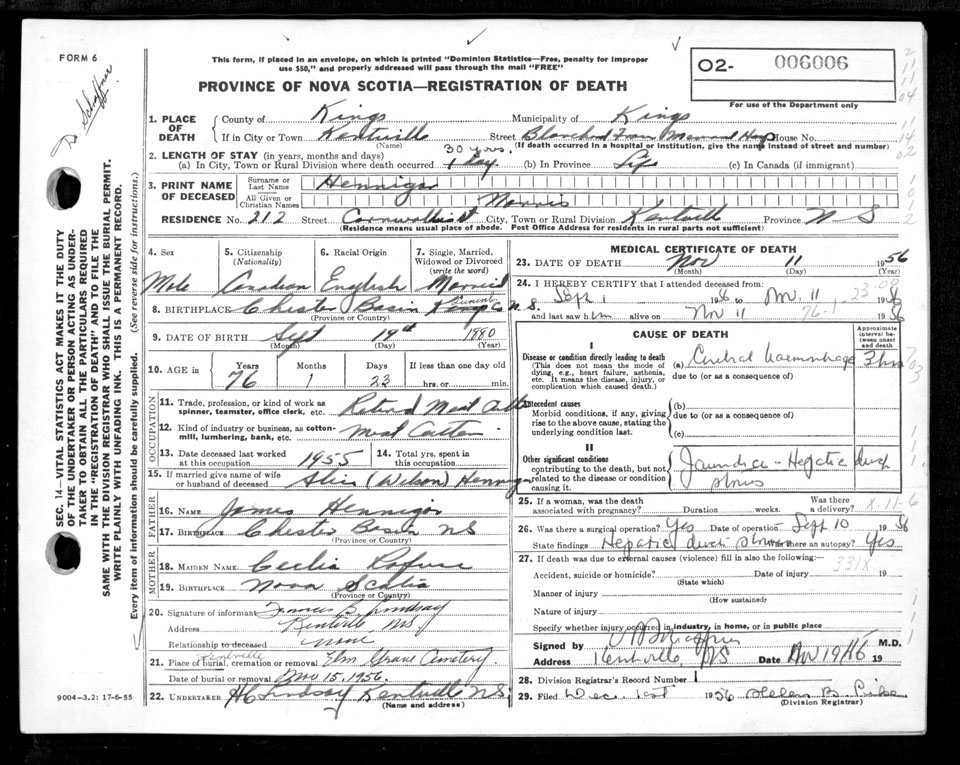 FORM 6
This form, if placed in an envelope, on which is printed "Dominion Statistics—Free, penalty for improper
use $50," and properly addressed will pass through the mail "FREE"
PROVINCE OF NOVA SCOTIA—REGISTRATION OF DEATH
O2- 006006
For use of the Department only
Dr Schaffner
SEC. 14—VITAL STATISTICS ACT MAKES IT THE DUTY
OF THE UNDERTAKER OR PERSON ACTING AS UNDER-
TAKER TO OBTAIN ALL THE PARTICULARS REQUIRED
IN THE "REGISTRATION OF DEATH" AND TO FILE THE
SAME WITH THE DIVISION REGISTRAR WHO SHALL ISSUE THE BURIAL PERMIT.
WRITE PLAINLY WITH UNFADING INK. THIS IS A PERMANENT RECORD.
Every item of information should be carefully supplied. (See reverse side for instructions.)
1. PLACE OF DEATH
County of Kings Municipality of Kings
If in City or Town Kentville Street Blanchard Hosp House No.
(Name) (If death occurred in a hospital or institution, give the name instead of street and number)
2. LENGTH OF STAY (in years, months and days) 30 yrs.
(a) In City, Town or Rural Division where death occurred 1 Day (b) In Province Life (c) In Canada (if immigrant)
3. PRINT NAME OF DECEASED
Surname or Last Name Hennigar
All Given or Christian Names Morris
RESIDENCE No. 212 Street Cornwallis St City, Town or Rural Division Kentville Province N S
(Residence means usual place of abode. Post Office Address for residents in rural parts not sufficient)
4. Sex 5. Citizenship (Nationality) 6. Racial Origin 7. Single, Married, Widowed or Divorced (write the word)
Male Canadian English Married
8. BIRTHPLACE Chester Basin N.S.
(Province or Country)
9. DATE OF BIRTH Sept 19th 1880
(Month) (Day) (Year)
10. AGE in Years Months Days If less than one day old
76 1 23 hrs. or min.
OCCUPATION
11. Trade, profession, or kind of work as
spinner, teamster, office clerk, etc. Retired Meat
12. Kind of industry or business, as cotton-
mill, lumbering, bank, etc. Meat Cutter
13. Date deceased last worked
at this occupation 1955
14. Total yrs. spent in
this occupation
15. If married give name of wife
or husband of deceased (Wilson) Hennigar
FATHER
16. NAME James Hennigar
17. BIRTHPLACE Chester Basin NS
(Province or Country)
MOTHER
18. MAIDEN NAME Cecilia
19. BIRTHPLACE Nova Scotia
(Province or Country)
20. Signature of informant Francis B. Lindsay
Address Kentville NS
Relationship to deceased none
21. Place of burial, cremation or removal Kentville Elm Grove Cemetery
Date of burial or removal Nov 15, 1956.
22. UNDERTAKER HC Lindsay Kentville N.S.
(Name and address)
9004-3.2: 17-6-55
MEDICAL CERTIFICATE OF DEATH
23. DATE OF DEATH Nov 11 1956
(Month) (Day) (Year)
24. I HEREBY CERTIFY that I attended deceased from:
Sept 1 1956 to Nov. 11 1956
and last saw him alive on Nov 11 1956
CAUSE OF DEATH
Approximate interval between onset and death
I
Disease or condition directly leading to death
(This does not mean the mode of
dying, e.g., heart failure, asthenia,
etc. It means the disease, injury, or
complication which caused death.)
(a) Cerebral haemorrhage 3 hrs
due to (or as a consequence of)
Antecedent causes
Morbid conditions, if any, giving
rise to the above cause, stating the
underlying condition last.
(b)
due to (or as a consequence of)
(c)
II
Other significant conditions
contributing to the death, but not
related to the disease or condition
causing it.
Jaundice - Hepatic duct
stones
25. If a woman, was the death
associated with pregnancy? Duration weeks. Was there a delivery?
26. Was there a surgical operation? Yes Date of operation Sept 10 1956
State findings Hepatic duct stones Was there an autopsy? Yes
27. If death was due to external causes (violence) fill in also the following:— 331X
Accident, suicide or homicide? Date of injury 19
(State which)
Manner of injury
(How sustained)
Nature of injury
Specify whether injury occurred in industry, in home, or in public place
Signed by M.D.
Address Kentville, NS Date Nov 19 19
28. Division Registrar's Record Number
29. Filed Dec. 1st 1956 Helen B.
(Division Registrar)